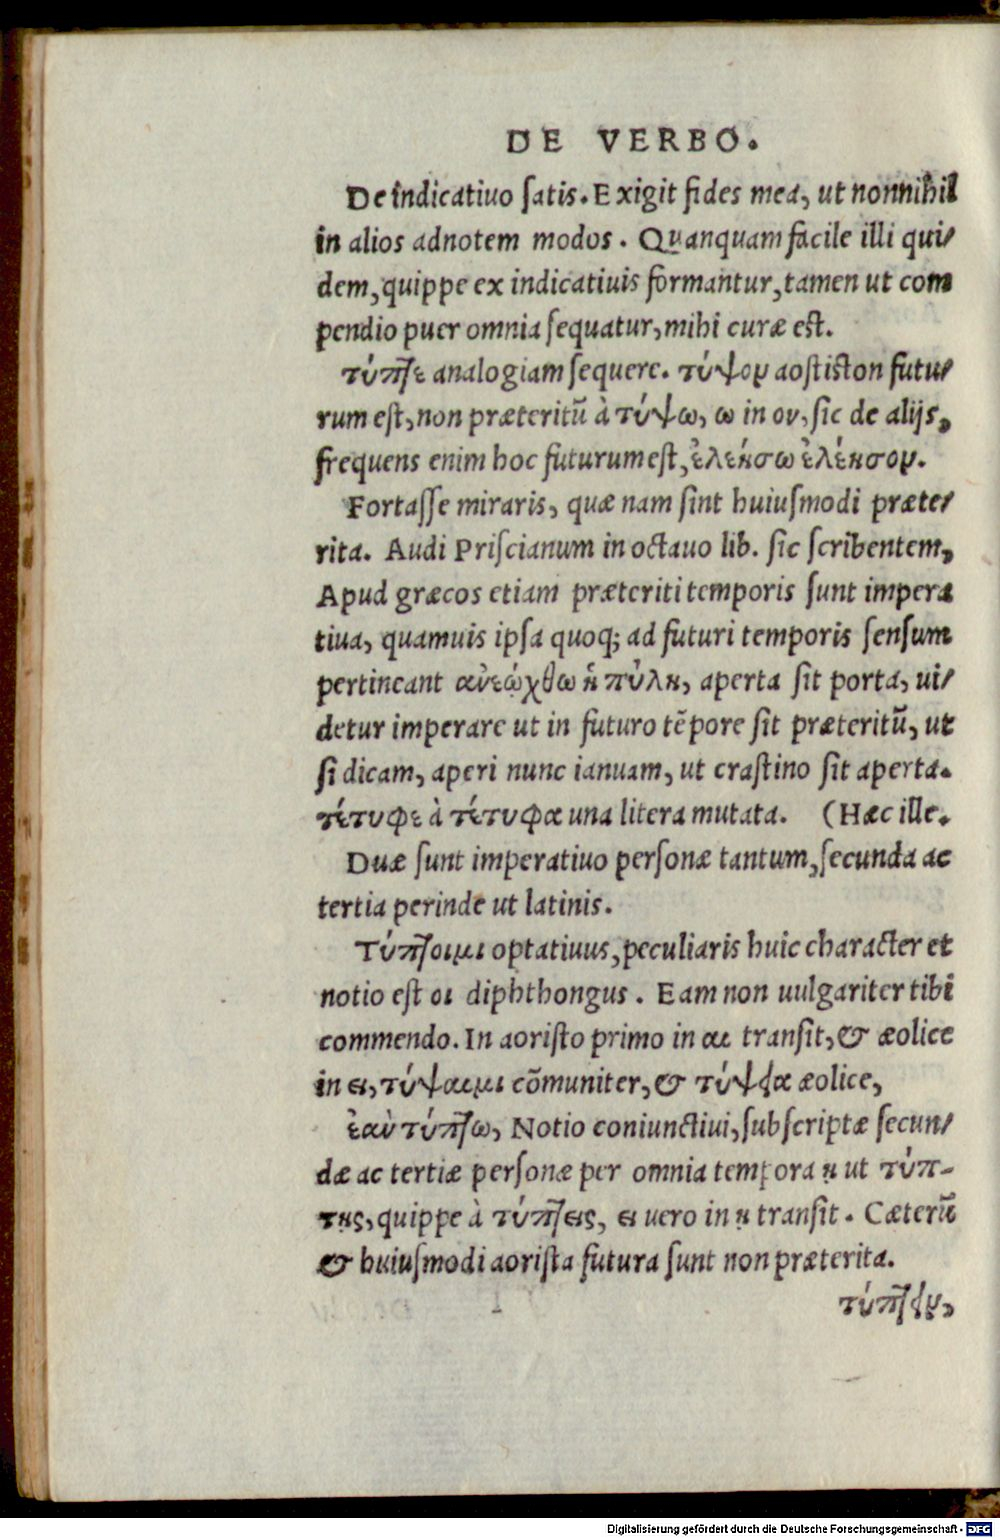 DE VERBO.
De indicatiuo ſatis. Exigit fides mea, ut nonnihil
in alios adnotem modos. Quanquam facile illi qui/
dem, quippe ex indicatiuis formantur, tamen ut com
pendio puer omnia ſequatur, mihi curæ eſt.
τύπτε analogiam ſequere. τύψον aoſtiſton futu/
rum eſt, non præteritũ à τύψω, ω in ον, ſic de alijs,
frequens enim hoc futurum eſt, ἐλεήσω ἐλέησον.
Fortaſſe miraris, quæ nam ſint huiuſmodi præte/
rita. Audi Priſcianum in octauo lib. ſic ſcribentem,
Apud græcos etiam præteriti temporis ſunt impera
tiua, quamuis ipſa quoq; ad futuri temporis ſenſum
pertineant ανεῴχθω ἡ πύλη, aperta ſit porta, ui/
detur imperare ut in futuro tẽpore ſit præteritũ, ut
ſi dicam, aperi nunc ianuam, ut craſtino ſit aperta.
τέτυφε à τέτυφα una litera mutata. (Hæc ille.
Duæ ſunt imperatiuo perſonæ tantum, ſecunda ac
tertia perinde ut latinis.
Τύπτοιμι optatiuus, peculiaris huic character et
notio eſt οι diphthongus. Eam non uulgariter tibi
commendo. In aoriſto primo in αι tranſit, & æolice
in ει, τύψαιμι cõmuniter, & τύψεια æolice,
ἐὰν τύπτω, Notio coniunctiui, ſubſcriptæ ſecun/
dæ ac tertiæ perſonæ per omnia tempora ῃ ut τύπ-
τῃς, quippe à τύπτεις, ει uero in ῃ tranſit. Cæterũ
& huiuſmodi aoriſta futura ſunt non præterita.
τύπτειν,
Digitalisierung gefördert durch die Deutsche Forschungsgemeinschaft - DFG